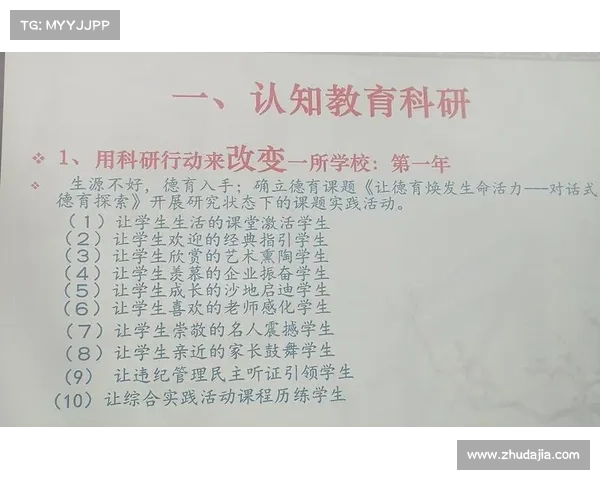 TG: MYYJJPP
一、认知教育科研
❖ 1、用科研行动来改变一所学校：第一年
❖ 生源不好，德育入手；确立德育课题《让德育焕发生命活力——对话式
德育探索》开展研究状态下的课题实践活动。
（1）让学生生活的课堂激活学生
（2）让学生欢迎的经典指引学生
（3）让学生欣赏的艺术熏陶学生
（4）让学生羡慕的企业振奋学生
（5）让学生成长的沙地启迪学生
（6）让学生喜欢的老师感化学生
（7）让学生崇敬的名人震撼学生
（8）让学生亲近的家长鼓舞学生
（9） 让违纪管理民主听证引领学生
（10）让综合实践活动课程历练学生
www.zhudajia.com